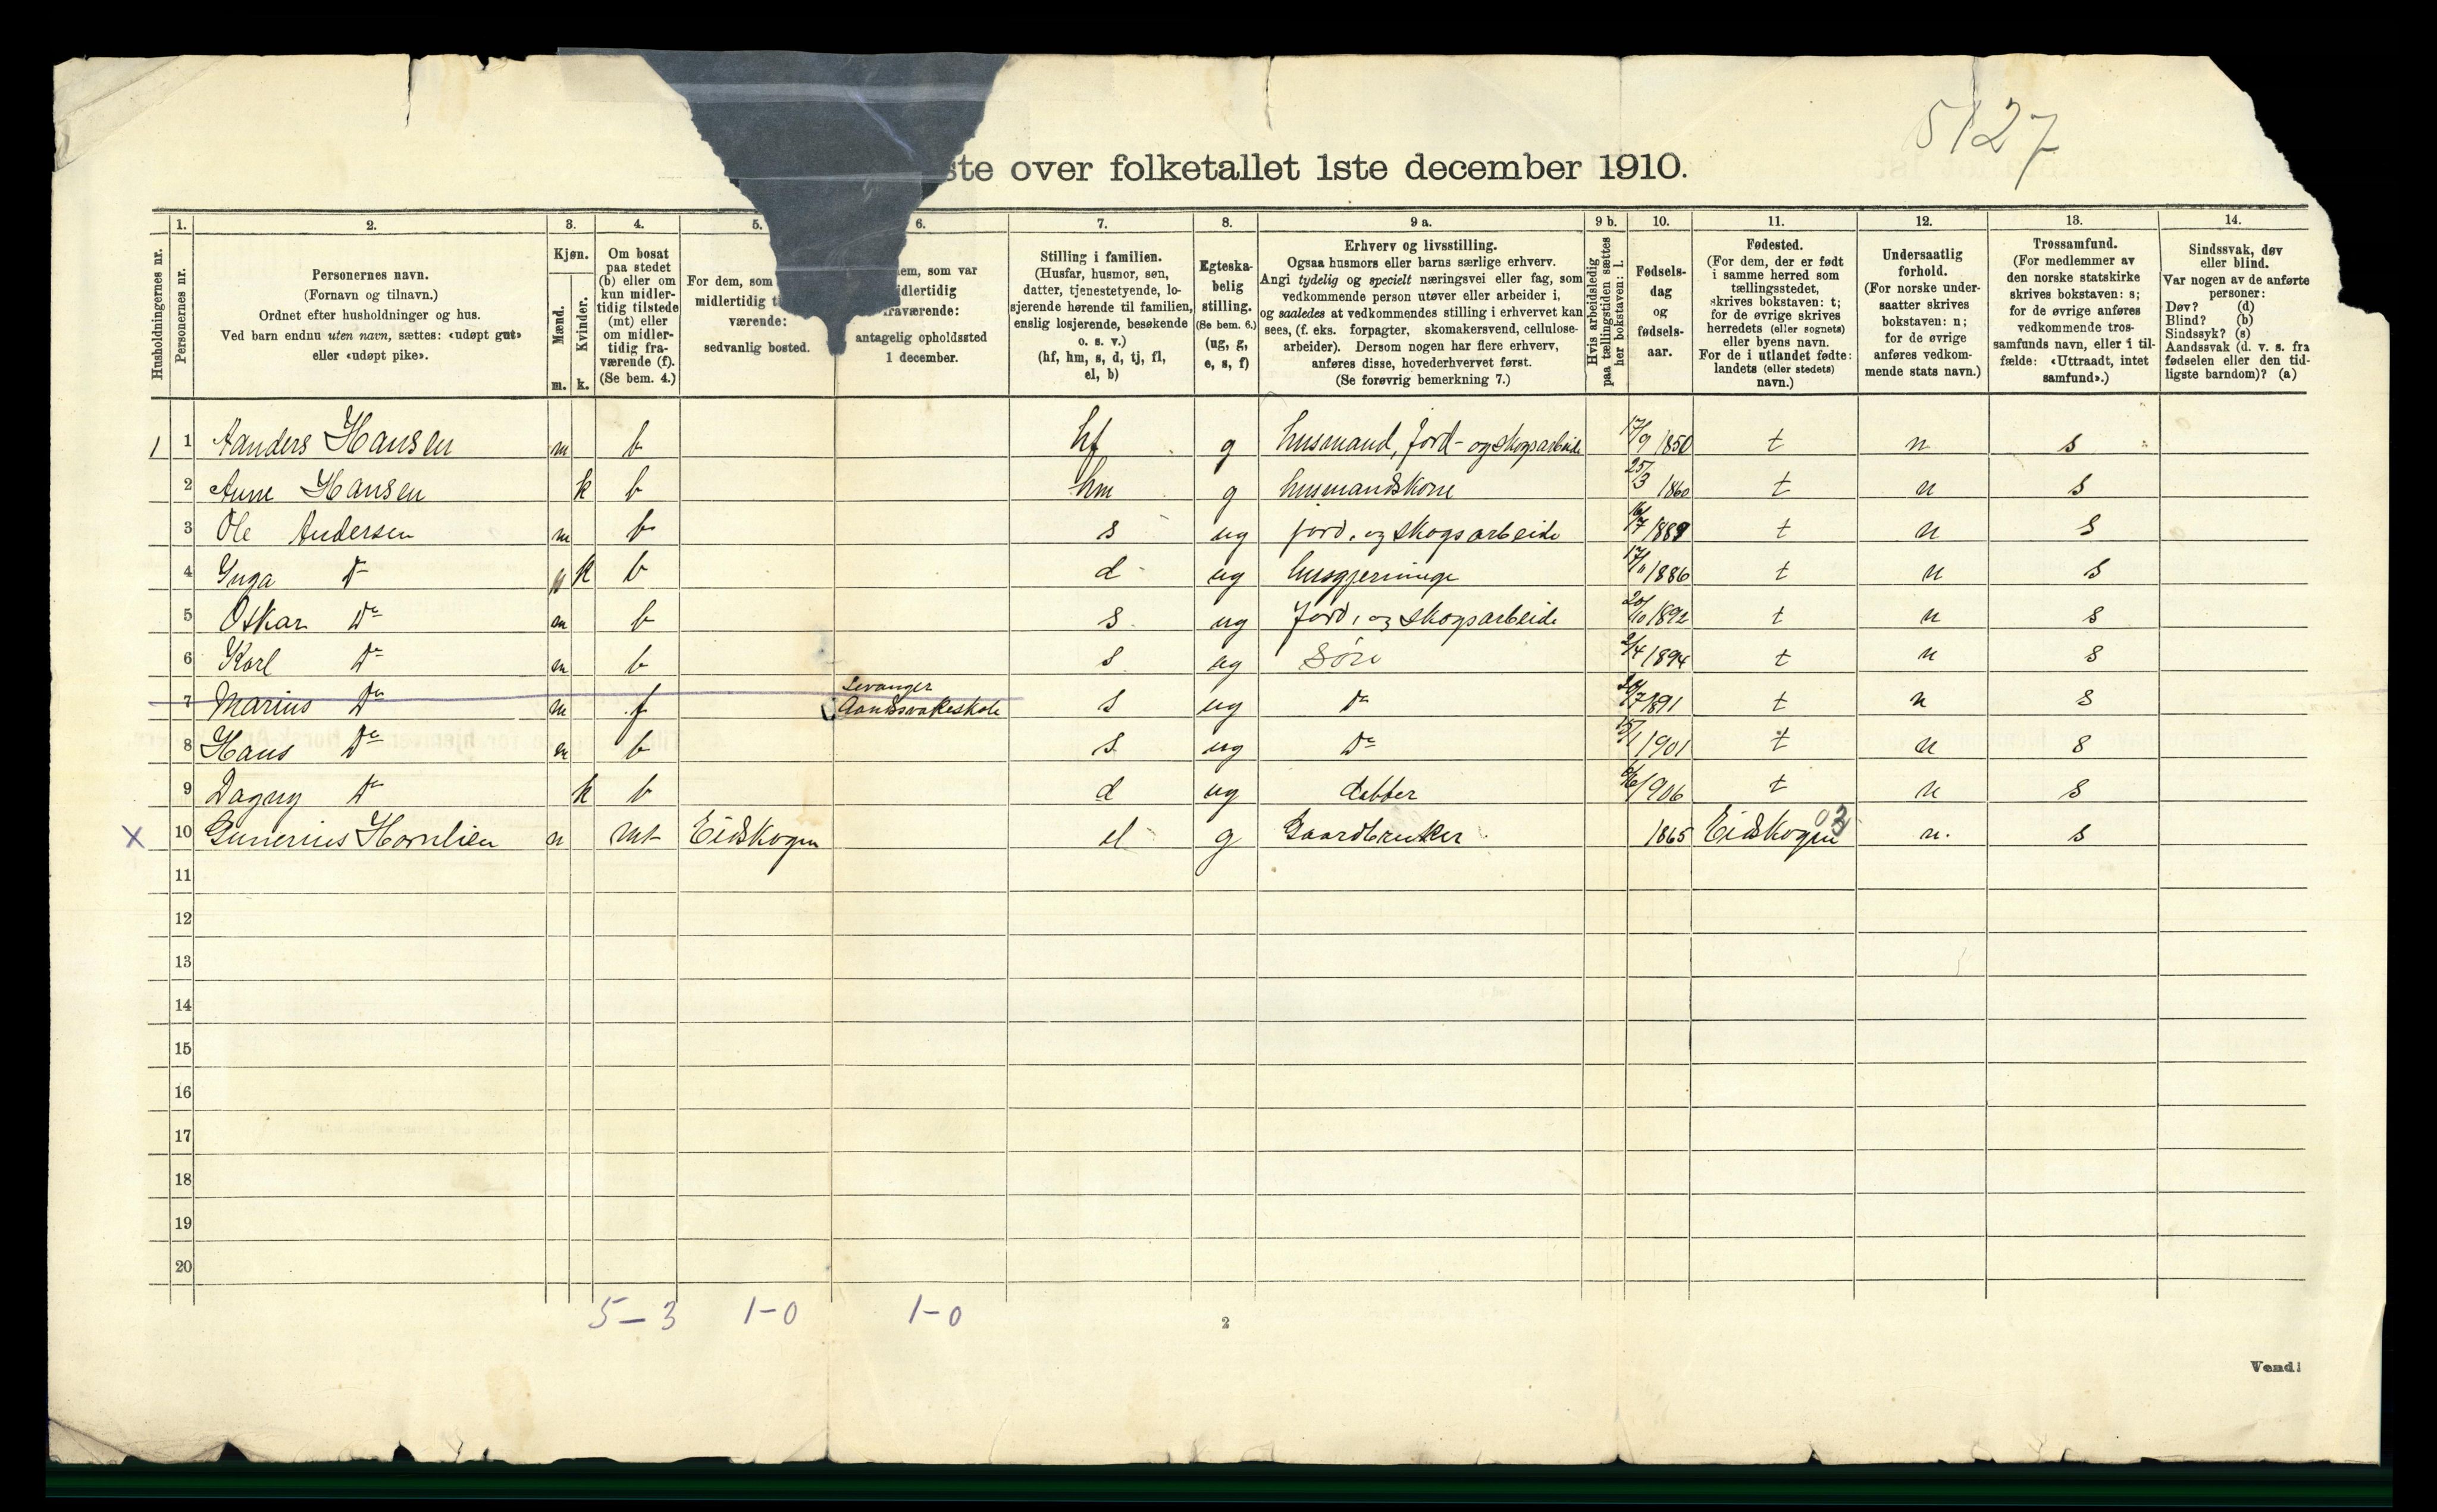 5127
ste over folketallet 1ste december 1910.
1. 2. 3. 4. 5. 6. 7. 8. 9 a. 9 b. 10. 11. 12. 13. 14.
Husholdningernes nr.
Personernes nr.
Personernes navn.
(Fornavn og tilnavn.)
Ordnet efter husholdninger og hus.
Ved barn endnu uten navn, sættes: «udøpt gut»
eller «udøpt pike».
Kjøn.
Mænd.
Kvinder.
m. k.
Om bosat
paa stedet
(b) eller om
kun midler-
tidig tilstede
(mt) eller
om midler-
tidig fra-
værende (f).
(Se bem. 4.)
For dem, som
midlertidig t
værende:
sedvanlig bosted.
em, som var
idlertidig
raværende:
antagelig opholdssted
1 december.
Stilling i familien.
(Husfar, husmor, søn,
datter, tjenestetyende, lo-
sjerende hørende til familien,
enslig losjerende, besøkende
o. s. v.)
(hf, hm, s, d, tj, fl,
el, b)
Egteska-
belig
stilling.
(Se bem. 6.)
(ug, g,
e, s, f)
Erhverv og livsstilling.
Ogsaa husmors eller barns særlige erhverv.
Angi tydelig og specielt næringsvei eller fag, som
vedkommende person utøver eller arbeider i,
og saaledes at vedkommendes stilling i erhvervet kan
sees, (f. eks. forpagter, skomakersvend, cellulose-
arbeider). Dersom nogen har flere erhverv,
anføres disse, hovederhvervet først.
(Se forøvrig bemerkning 7.)
Hvis arbeidsledig
paa tællingstiden sættes
her bokstaven: l.
Fødsels-
dag
og
fødsels-
aar.
Fødested.
(For dem, der er født
i samme herred som
tællingsstedet,
skrives bokstaven: t;
for de øvrige skrives
herredets (eller sognets)
eller byens navn.
For de i utlandet fødte:
landets (eller stedets)
navn.)
Undersaatlig
forhold.
(For norske under-
saatter skrives
bokstaven: n;
for de øvrige
anføres vedkom-
mende stats navn.)
Trossamfund.
(For medlemmer av
den norske statskirke
skrives bokstaven: s;
for de øvrige anføres
vedkommende tros-
samfunds navn, eller i til-
fælde: «Uttraadt, intet
samfund».)
Sindssvak, døv
eller blind.
Var nogen av de anførte
personer:
Døv? (d)
Blind? (b)
Sindssyk? (s)
Aandssvak (d. v. s. fra
fødselen eller den tid-
ligste barndom)? (a)
1 1 Aanders Hansen m b hf g husmand, Jord- og skogsarbeide 17/9 1850 t n s
2 Anne Hansen k b hm g husmandskone 25/3 1860 t n s
3 Ole Andersen m b s ug jord. og skogsarbeide 1889 t n s
4 Inga Do k b d ug husgjerninge 1886 t n s
5 Oskar Do m b s ug Jord. og skogsarbeide 20/10 1892 t n s
6 Karl Do m b s ug Søn 2/4 1894 t n s
Levanger
7 Marius Do m f Aandssvakeskole s ug Do 1891 t n s
8 Hans Do m b s ug Do 1901 t n s
9 Dagny Do k b d ug datter 1906 t n s
X 10 Gunerius Hornlien m mt Eidskogen el g Gaardbruker 1865 Eidskogen 03 n. s
11
12
13
14
15
16
17
18
19
20
5-3 1-0 1-0
2
Vend!